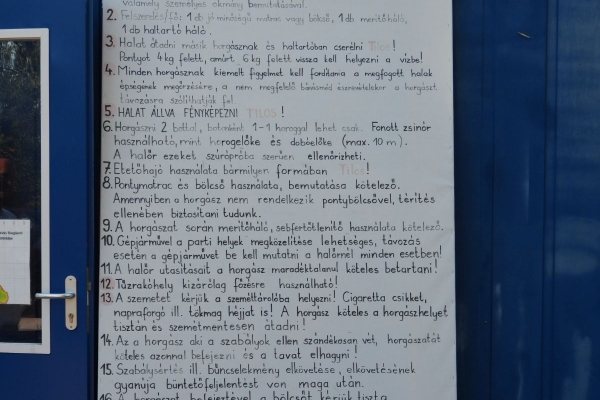 valamely személyes okmány bemutatásával.
2. Felszerelés/fő: 1 db jó minőségű matrac vagy bölcső, 1 db merítőháló,
1 db haltartó háló.
3. Halat átadni másik horgásznak és haltartóban cserélni Tilos!
Pontyot 4 kg felett, amúrt 6 kg felett vissza kell helyezni a vízbe!
4. Minden horgásznak kiemelt figyelmet kell fordítania a megfogott halak
épségének megőrzésére, a nem megfelelő bánásmód észrevételekor a horgászt
távozásra szólíthatják fel.
5. HALAT ÁLLVA FÉNYKÉPEZNI TILOS!
6. Horgászni 2 bottal, botonként 1-1 horoggal lehet csak. Fonott zsinór
használható, mint horogelőke és dobóelőke (max. 10 m).
A halőr ezeket szúrópróba szerűen ellenőrizheti.
7. Etetőhajó használata bármilyen formában Tilos!
8. Pontymatrac és bölcső használata, bemutatása kötelező.
Amennyiben a horgász nem rendelkezik pontybölcsővel, térítés
ellenében biztosítani tudunk.
9. A horgászat során merítőháló, sebfertőtlenítő használata kötelező.
10. Gépjárművel a parti helyek megközelítése lehetséges, távozás
esetén a gépjárművet be kell mutatni a halőrnél minden esetben!
11. A halőr utasításait a horgász maradéktalanul köteles betartani!
12. Tűzrakóhely kizárólag főzésre használható!
13. A szemetet kérjük a szeméttárolóba helyezni! Cigaretta csikket,
napraforgó ill. tökmag héjjat is! A horgász köteles a horgászhelyet
tisztán és szemétmentesen átadni!
14. Az a horgász aki a szabályok ellen szándékosan vét, horgászatát
köteles azonnal befejezni és a tavat elhagyni!
15. Szabálysértés ill. bűncselekmény elkövetése, elkövetésének
gyanúja büntetőfeljelentést von maga után.
16. A horgászat befejeztével a bölcsőt kérjük tiszta